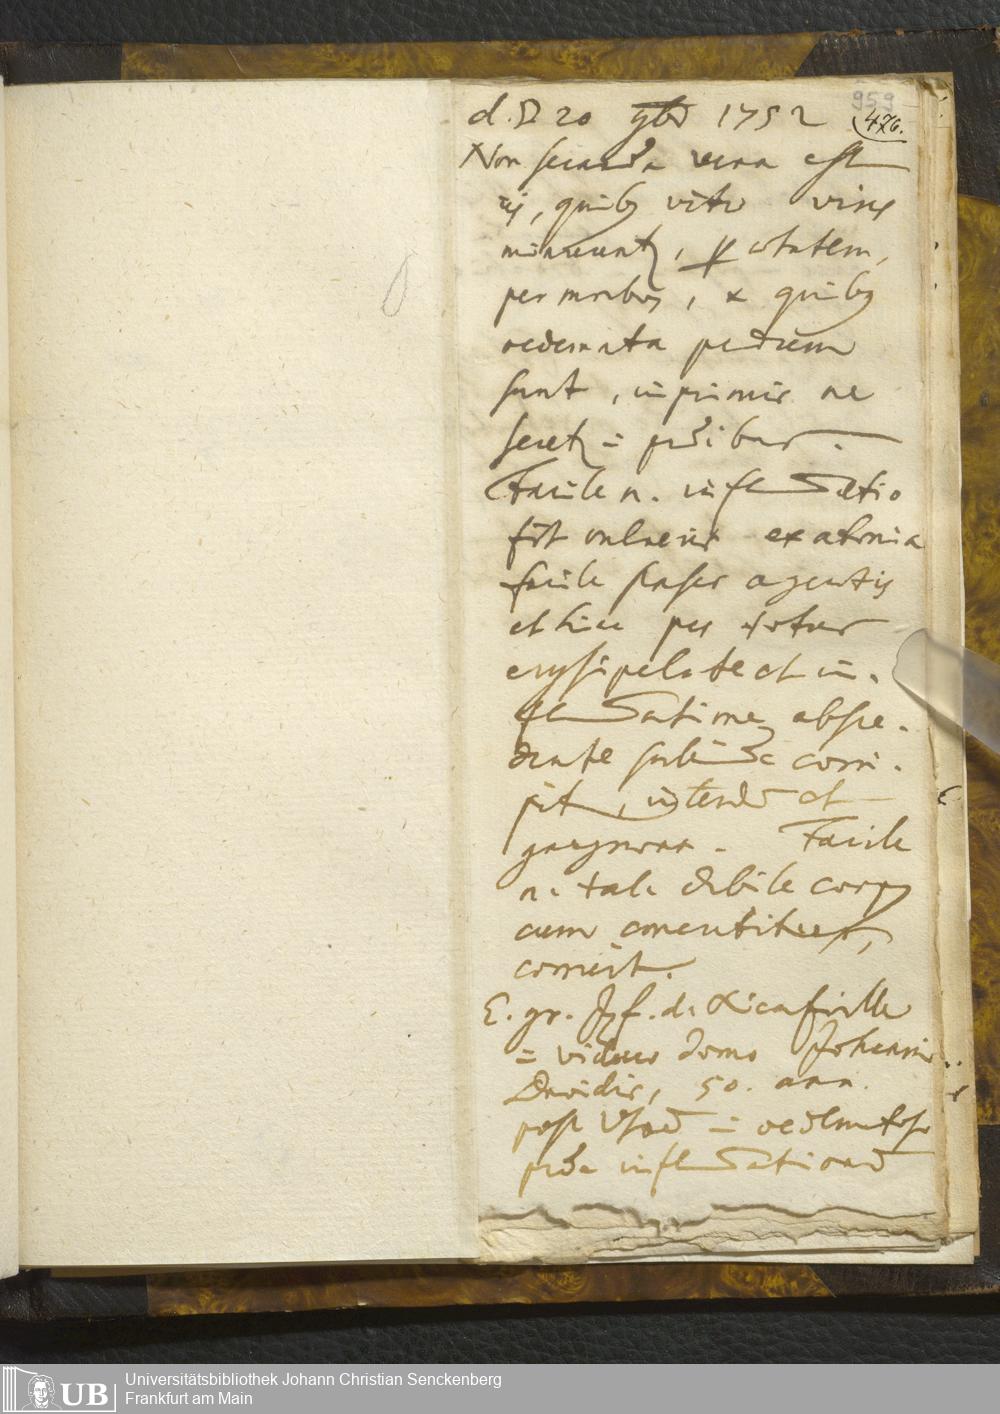 959
d. 20 9br 1752
476.
Non secanda vena est
iis, quibus vita vires
minuunt, p aetatem,
per morbos, & quibus
oedemata pedum
sunt, inprimis ne
secet = pedibus.
Facile n. inflammatio
fit vulneris ex atonia
facile phaser agentis
et hinc per totus
erysipelate et in-
flammatione absce-
dente subinde corri-
pit, intend et
gangraena. Facile
n. tale debile corpus
cum concutitur,
corruit.
E. gr. de
= viduae domo Johannis
Davidis, 50. ann.
post = oedematoso
pede inflammation
UB
Universitätsbibliothek Johann Christian Senckenberg
Frankfurt am Main